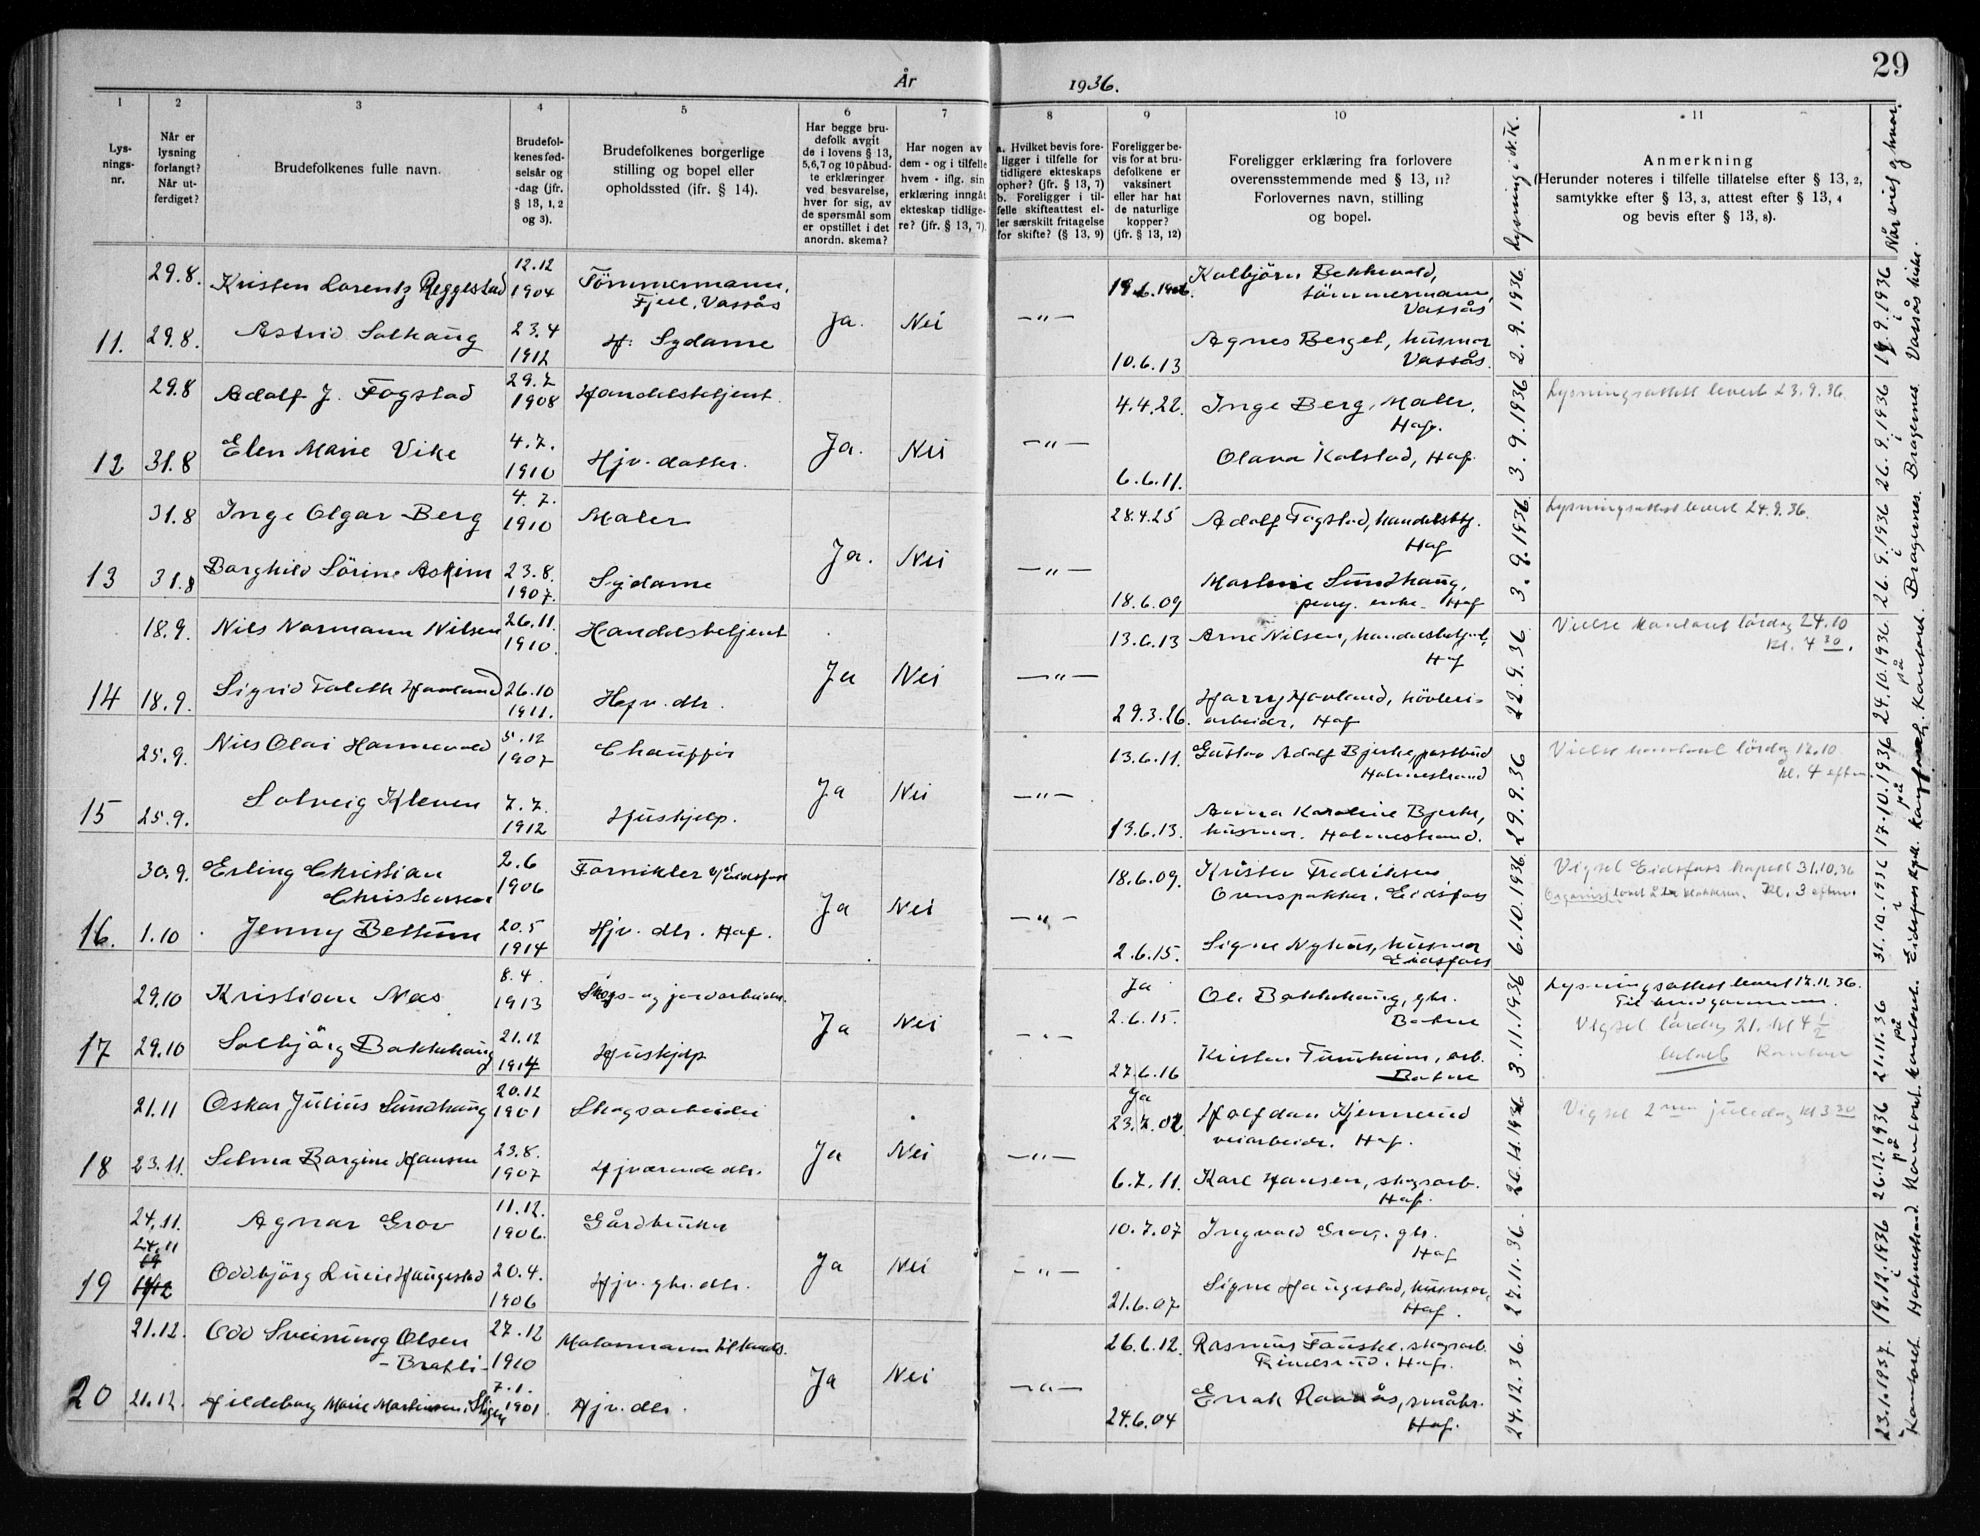 29
År 1936.
1 2 3 4 5 6 7 8 9 10 11
Lys-
nings-
nr.
Når er
lysning
forlangt?
Når ut-
ferdiget?
Brudefolkenes fulle navn.
Brudefol-
kenes fød-
selsår og
-dag (jfr.
§ 13, 1, 2
og 3).
Brudefolkenes borgerlige
stilling og bopel eller
opholdssted (jfr. § 14).
Har begge bru-
defolk avgit
de i lovens § 13,
5, 6, 7 og 10 påbud-
te erklæringer
ved besvarelse,
hver for sig, av
de spørsmål som
er opstillet i det
anordn. skema?
Har nogen av
dem - og i tilfelle
hvem - iflg. sin
erklæring inngåt
ekteskap tidlige-
re? (jfr. § 13, 7).
a. Hvilket bevis fore-
ligger i tilfelle for
tidligere ekteskaps
ophør? (jfr. § 13, 7)
b. Foreligger i til-
felle skifteattest el-
ler særskilt fritagelse
for skifte? (§ 13, 9)
Foreligger be-
vis for at bru-
defolkene er
vaksinert
eller har hat
de naturlige
kopper?
(jfr. § 13, 12)
Foreligger erklæring fra forlovere
overensstemmende med § 13, 11?
Forlovernes navn, stilling
og bopel.
Lysning i N.K.
Anmerkning
(Herunder noteres i tilfelle tillatelse efter § 13, 2,
samtykke efter § 13, 3, attest efter § 13, 4
og bevis efter § 13, 8).
Når viet og hvor.
11. 29.8. Kristen Lorentz Reggestad 12.12 1904 Tömmermann, Fjell, Vassås
29.8. Astrid Solhaug 23.4 1912 Sydame Ja. Nei —"—
19.6.1906. Kolbjörn Bekkevold, tömmermann, Vassås
10.6.13 Agnes Berget, husmor Vassås.
2.9.1936 19.9.1936 i Vassås kirke.
12 29.8 Adolf J. Fogstad 29.7 1908 Handelsbetjent.
31.8 Elen Marie Vike 4.7. 1910 Hjv. datter. Ja. Nei —"—
4.4.22. Inge Berg, Maler, Hof.
6.6.11. Olava Kolstad, Hof.
3.9.1936 Lysningsattest levert 23.9.36. 26.9.1936 i Bragernes.
13 31.8 Inge Olgar Berg 4.7. 1910 Maler
31.8 Borghild Sörine Askim 23.8. 1907. Sydame Ja. Nei —"—
28.4.25 Adolf Fogstad, handelsbtj. Hof
18.6.09 Sundhaug, enke. Hof
3.9.1936 Lysningsattest levert 24.9.36. 26.9.1936 i Bragernes.
14 18.9. Nils Normann Nilsen 26.11. 1910. Handelsbetjent
18.9. Sigrid Haavland 26.10 1911. Hjv. dtr. Ja Nei —"—
13.6.13 Arne Nilsen, handelsbetjent, Hof
29.3.26. Harry Hovland, hövleri-
arbeider, Hof
22.9.36 Vielse kontoret lördag 24.10
kl. 4 30. 24.10.1936. på Kontoret.
15 25.9. Nils Olai Hannevold 5.12 1907 Chaufför
25.9. Solveig Kleven 7.7. 1912 Hushjelp. Ja Nei —"—
13.6.11. Gustav Adolf Bjerke, postbud Holmestrand
13.6.13. Anna Karoline Bjerke,
husmor. Holmestrand.
29.9.36 Vielse kontoret lördag 17.10.
kl. 4 efterm. 17.10.1936 på
16. 30.9. Erling Christian Christensen 2.6 1906 Fornikler v/ Eidsfoss
1.10 Jenny Bettum 20.5 1914 Hjv. dtr. Hof. Ja Nei —"—
18.6.09. Krister Fredriksen, Ovnspakker, Eidsfoss
2.6.15. Signe Nyhus, husmor Eidsfoss
6.10.1936 Vigsel Eidsfoss kapell 31.10.36
Organist kl. 3 efterm. 31.10.1936 i Eidsfoss kpll.
17 29.10 Kristian Næs 8.4. 1913 Skogs- og jordarbeider.
29.10 Solbjörg Bakkehaug 21.12 1914 Hushjelp Ja Nei
Ja 2.6.15. Ole Bakkehaug, gbr. Botne
27.6.16 Kristen arb. Botne
3.11.1936 Lysningsattest levert 17.11.36.
Til brudgommen.
Vigsel lördag 21. kl 4 ½
21.11.36 på kontoret.
18 21.11 Oskar Julius Sundhaug 20.12 1901 Skogsarbeider
23.11. Selma Borgine Hansen 23.8. 1907 Hjværende dtr. Ja Nei —"—
Ja 23.7.02 Halfdan Kjennerud
veiarbeider. Hof.
6.7.11. Karl Hansen, skogsarb. Hof.
Vigsel 2nen juledag kl 3 30 26.12.1936 på Kontoret.
19 24.11. 24.11 Agnar Grov 11.12. 1906. Gårdbruker
Oddbjörg Lucie Haugestad 20.4. 1906 Hjv. gbr. dtr. Ja Nei —"—
10.7.07 Ingvald Grov, gbr. Hof
21.6.07 Signe Haugestad, husmor, Hof.
27.11.36. 19.12.1936 i Holmestrand.
20 21.12. Odd Sveinung Olsen
-Bratli- 27.12 1910
21.12. Hildeborg Marie Martinsen 7.1. 1901. Hjv. dtr. Ja Nei —"—
26.6.12. Rasmus skogsarb. Hof.
24.6.04 småbr. Hof.
24.12.36. 23.1.1937. Kontoret.